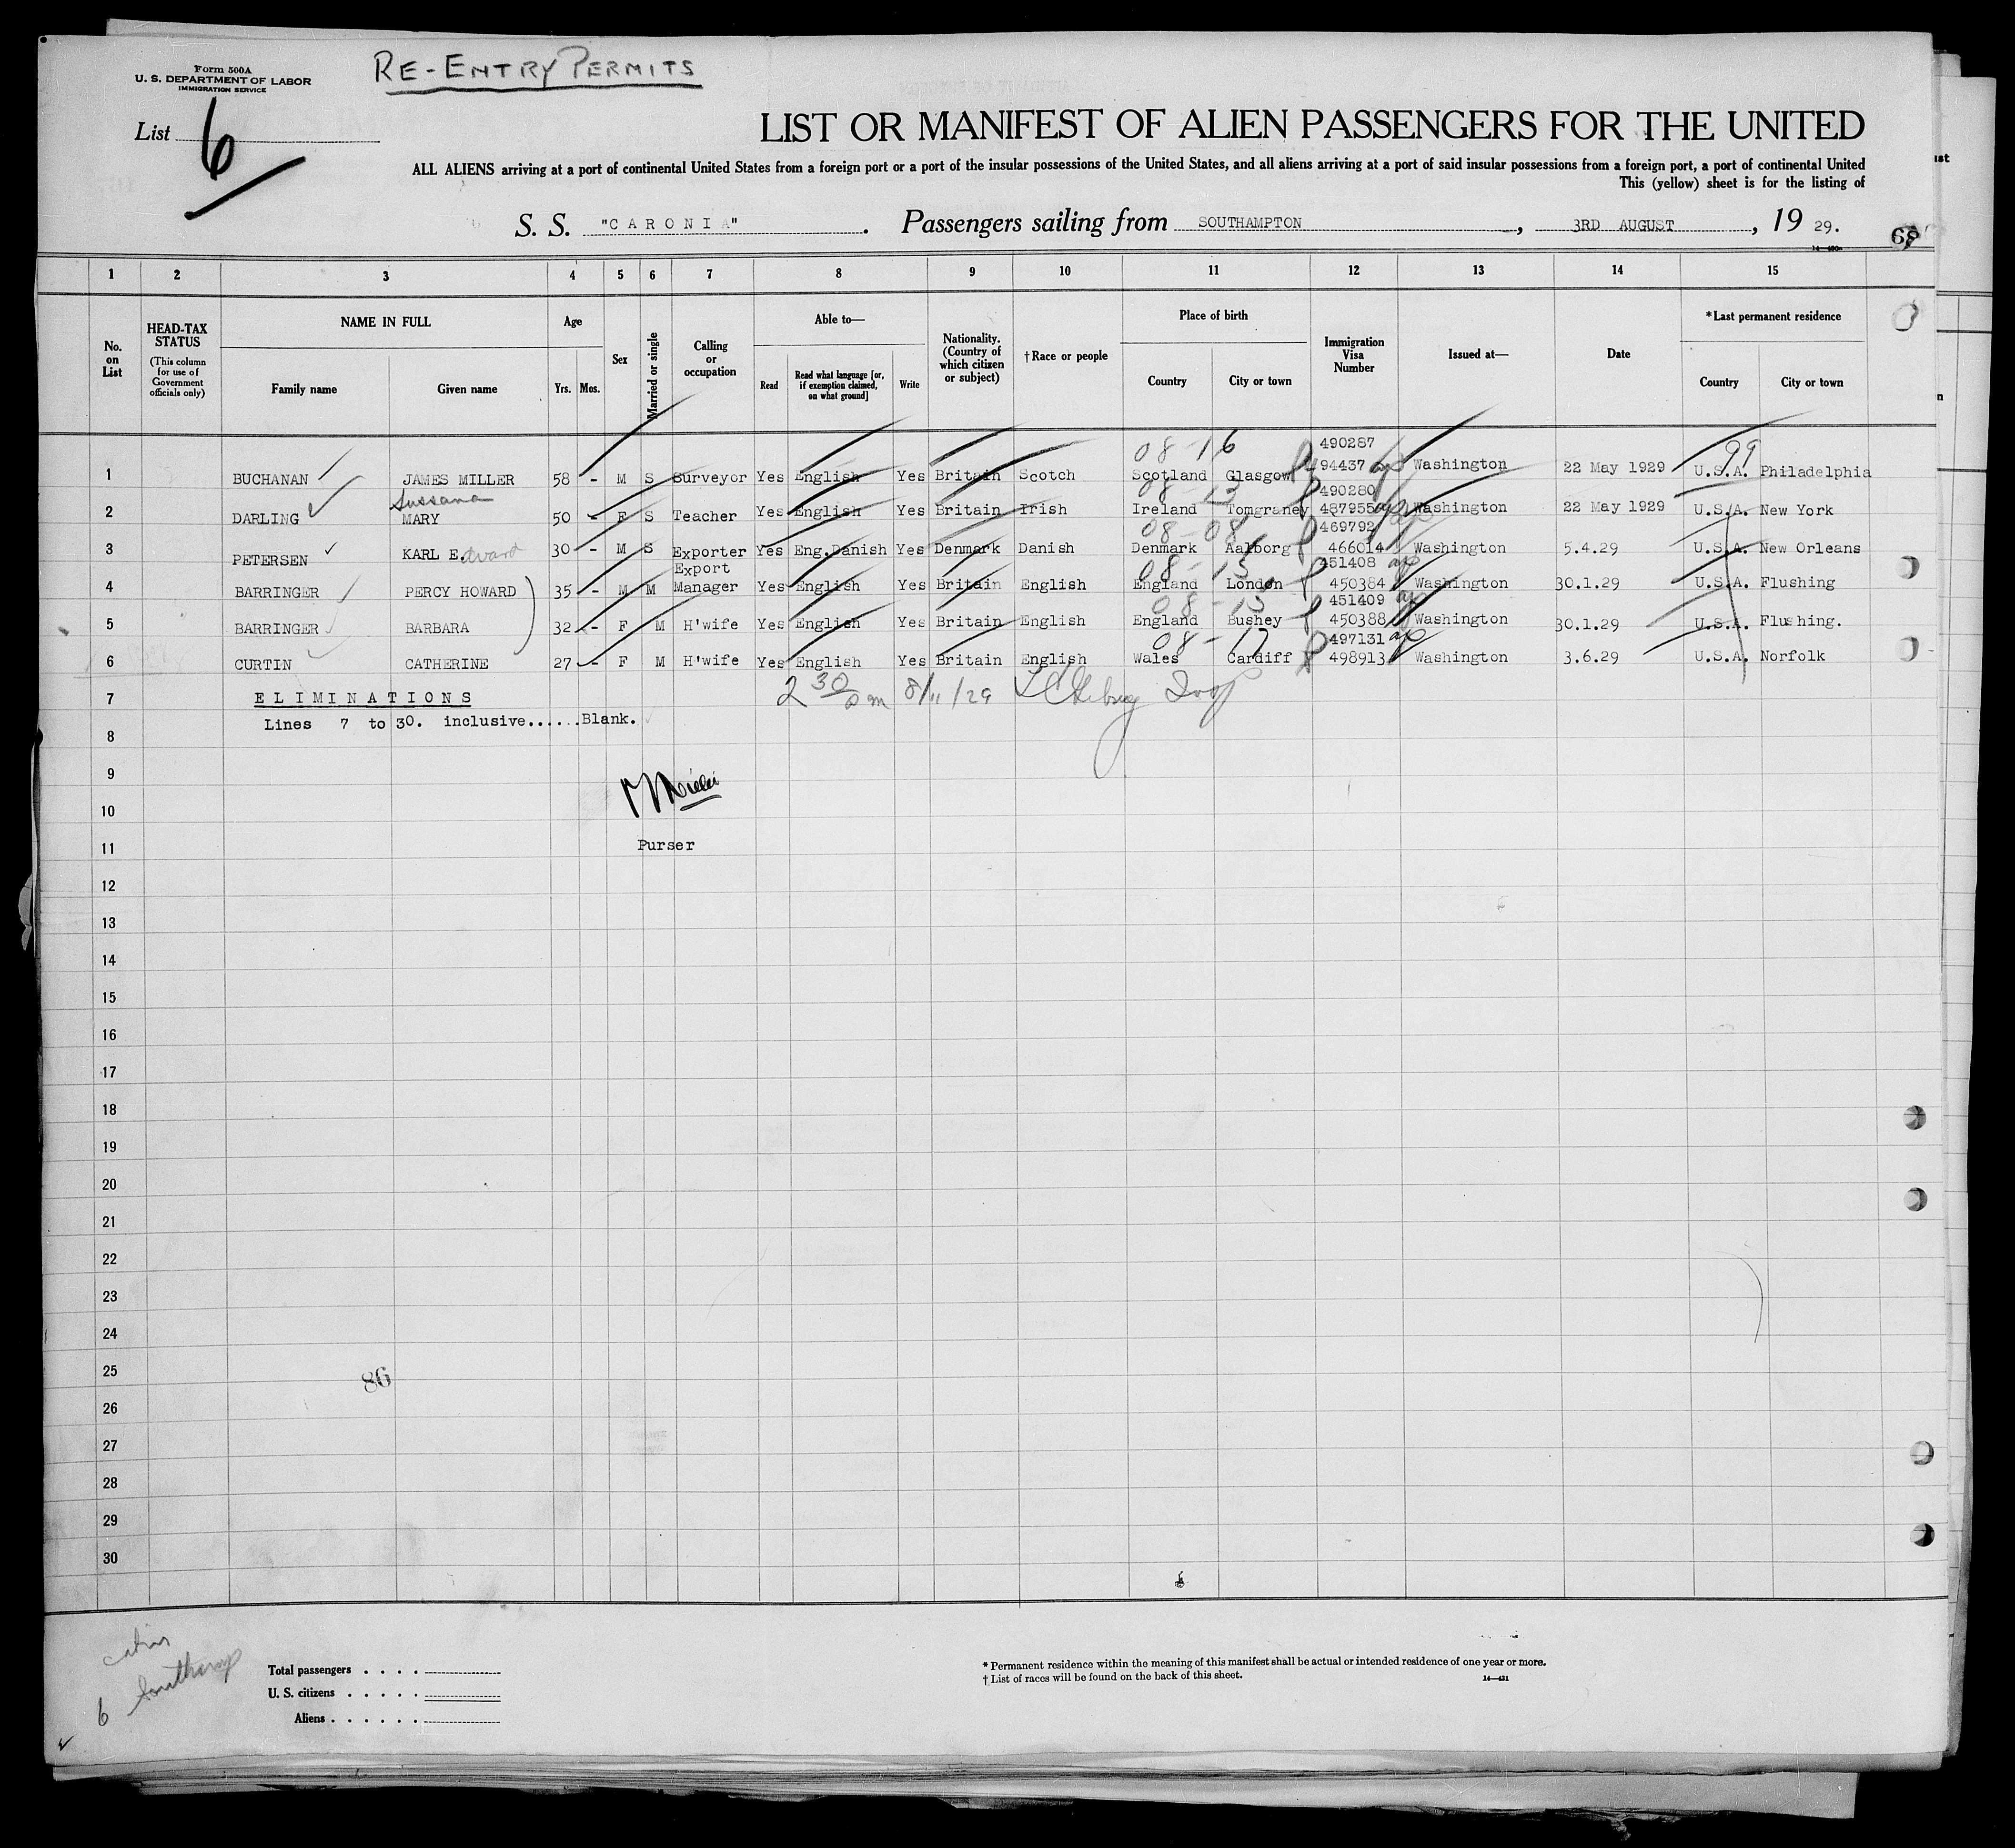 Form 500A
U. S. DEPARTMENT OF LABOR
IMMIGRATION SERVICE
RE-ENTRY PERMITS
List 6
LIST OR MANIFEST OF ALIEN PASSENGERS FOR THE UNITED
ALL ALIENS arriving at a port of continental United States from a foreign port or a port of the insular possessions of the United States, and all aliens arriving at a port of said insular possessions from a foreign port, a port of continental United
This (yellow) sheet is for the listing of
S. S. "CARONIA". Passengers sailing from SOUTHAMPTON, 3RD AUGUST, 19 29.
14-430
68
1 2 3 4 5 6 7 8 9 10 11 12 13 14 15
No. on List
HEAD-TAX STATUS (This column for use of Government officials only)
NAME IN FULL Family name Given name
Age Yrs. Mos.
Sex
Married or single
Calling or occupation
Able to— Read Read what language [or, if exemption claimed, on what ground] Write
Nationality. (Country of which citizen or subject)
†Race or people
Place of birth Country City or town
Immigration Visa Number
Issued at—
Date
*Last permanent residence Country City or town
08-16 490287 99
1 BUCHANAN JAMES MILLER 58 - M S Surveyor Yes English Yes Britain Scotch Scotland Glasgow 94437 Washington 22 May 1929 U.S.A. Philadelphia
Sussana 08-13 490280
2 DARLING MARY 50 - F S Teacher Yes English Yes Britain Irish Ireland Tomgraney 487955 Washington 22 May 1929 U.S.A. New York
08-08 469792
3 PETERSEN KARL E.dvard 30 - M S Exporter Yes Eng.Danish Yes Denmark Danish Denmark Aalborg 466014 Washington 5.4.29 U.S.A. New Orleans
Export 08-15 451408
4 BARRINGER PERCY HOWARD 35 - M M Manager Yes English Yes Britain English England London 450384 Washington 30.1.29 U.S.A. Flushing
08-15 451409
5 BARRINGER BARBARA 32 - F M H'wife Yes English Yes Britain English England Bushey 450388 Washington 30.1.29 U.S.A. Flushing.
08-17 497131
6 CURTIN CATHERINE 27 - F M H'wife Yes English Yes Britain English Wales Cardiff 498913 Washington 3.6.29 U.S.A. Norfolk
7 ELIMINATIONS 2 30 pm 8/11/29
Lines 7 to 30. inclusive......Blank.
8
9
10
11 Purser
12
13
14
15
16
17
18
19
20
21
22
23
24
25
86
26
27
28
29
30
6 Southamp
Total passengers . . . .
U. S. citizens . . . . .
Aliens . . . . . .
* Permanent residence within the meaning of this manifest shall be actual or intended residence of one year or more.
† List of races will be found on the back of this sheet.
14-431